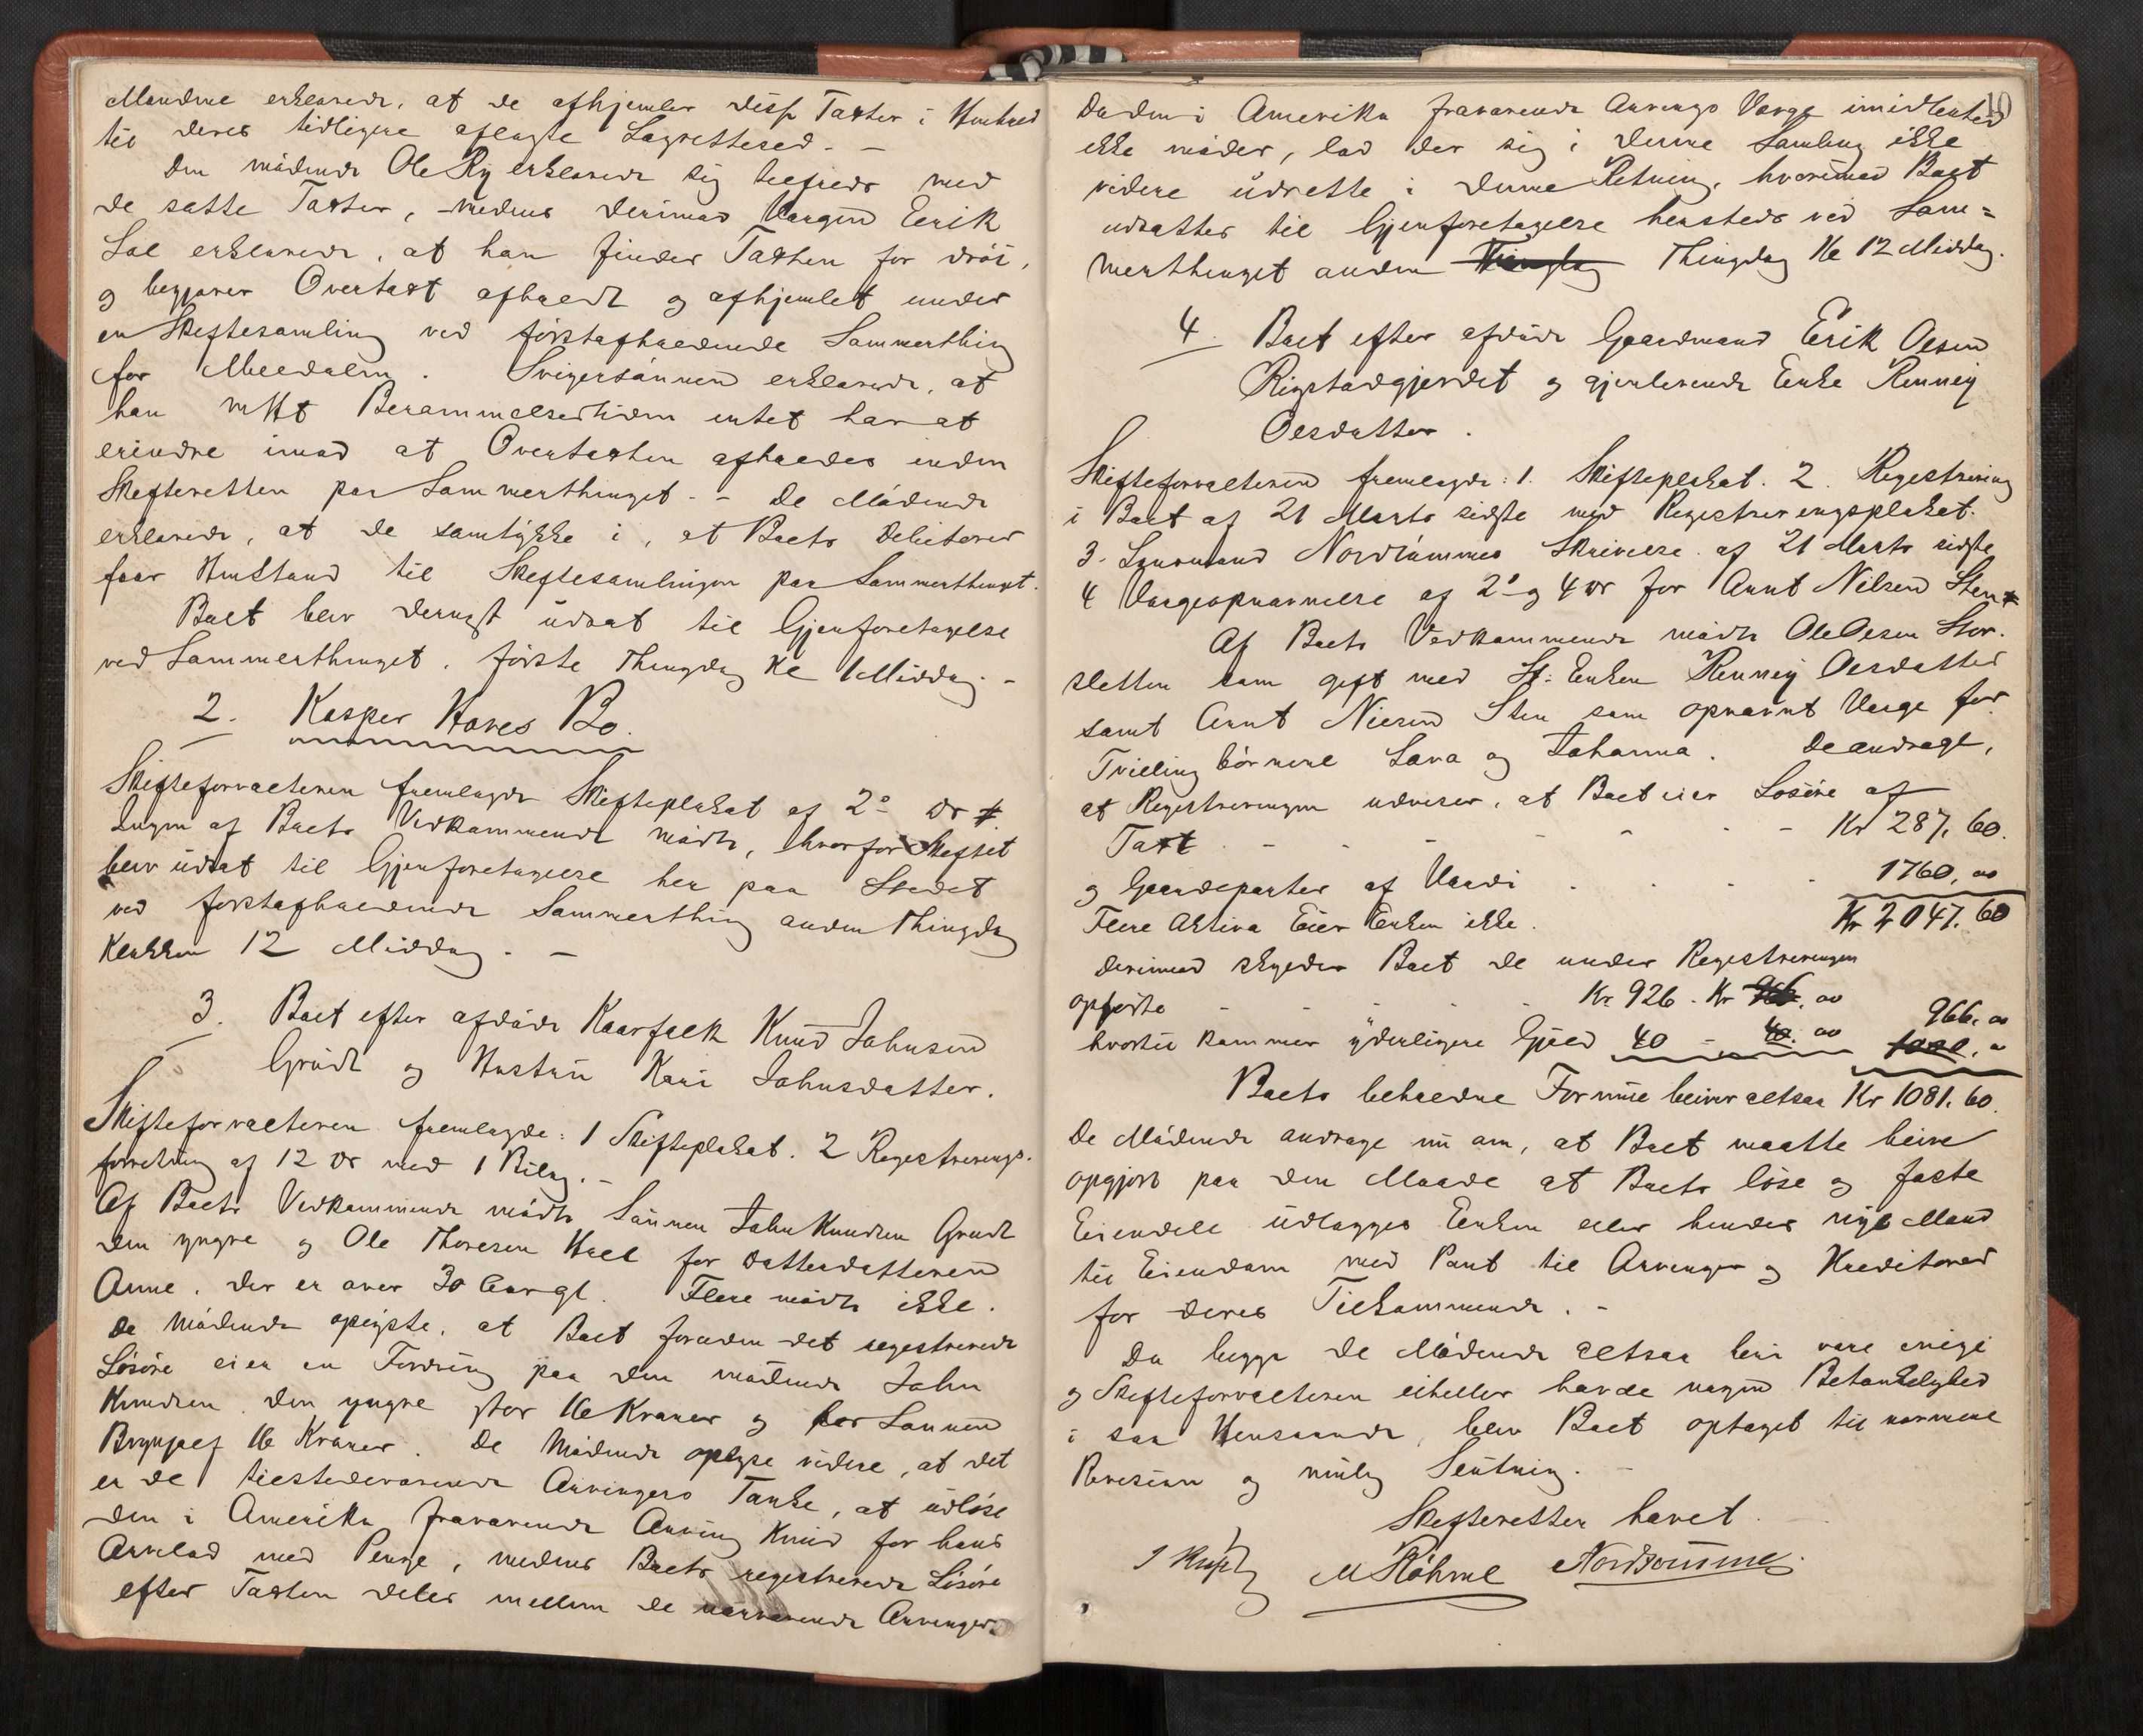 Mændene erklærede, at de afhjemler disse Taxter i Henhold
til deres tidligere aflagte Lagretteed. —
Den mødende Ole Ry erklærede sig tilfreds med
de satte Taxter, medens derimod Værgen Eirik
Sæl erklærede, at han finder Taxten for drøi,
og begjærer Overtaxt afholdt og afhjemlet under
en Skiftesamling ved førstafholdende Sommerthing
for Meldalen. Svigersønnen erklærede, at
han Berammelsestiden intet har at
erindre imod at Overtaxten afholdes inden
Skifteretten paa Sommerthinget. - De Mødende
erklærede, at de samtykke i, at Boets Debitorer
faar Henstand til Skiftesamlingen paa Sommerthinget.
Boet blev dernæst udsat til Gjenforetagelse
ved Sommerthinget, første Thingdag Kl 1 Middag. -
2. Kasper Hoves Bo.
Skifteforvalteren fremlagde Skifteplakat af 2d ds
Ingen af Boets Vedkommende mødte, hvorfor Skiftet
blev udsat til Gjenforetagelse her paa Stedet
ved førstafholdende Sommerthing anden Thingdag
Klokken 12 Middag. —
3. Boet efter afdøde Kaarfolk Knud Johnsen
Grudt og Hustru Kari Johnsdatter.
Skifteforvalteren fremlagde: 1 Skifteplakat. 2 Registrerings-
forretning af 12 ds med 1 Bilag. -
Af Boets Vedkommende mødte Sønnen John Knudsen Grudt
den yngre og Ole Thoresen Hoel for Datterdatteren
Anne, der er over 30 Aar gl. Flere mødte ikke.
De Mødende oplyste, at Boet foruden det registrerede
Løsøre eier en Fordring paa den mødende John
Knudsen den yngre stor 16 Kroner og hos Sønnen
Brynjolf 16 Kroner. De Mødende oplyse videre, at det
er de tilstedeværende Arvingers Tanke, at udløse
den i Amerika fraværende Arving Knud for hans
Arvelod med Penge, medens Boets registrerede Løsøre
efter Taxten deles mellem de nærværende Arvinger.
10
Da den i Amerika fraværende Arvings Værge imidlertid
ikke møder, lod der sig i denne Samling ikke
videre udrette i denne Retning, hvorimod Boet
udsattes til Gjenforetagelse hersteds ved Som=
merthinget anden Thingdag Kl 12 Middag.
4. Boet efter afdøde Gaardmand Eirik Olsen
Rigstadgjerdet og gjenlevende Enke Renney
Olsdatter.
Skifteforvalteren fremlagde: 1. Skifteplakat. 2. Registrering
i Boet af 21 Marts sidste med Registreringsplakat.
3. Lensmand Nordsømmes Skrivelse af 21 Marts sidste
4 Værgeopnævnelse af 2d og 4 ds for Arnt Nilsen Sten
Af Boets Vedkommende mødte Ole Olsen Stor-
sletten som gift med St: Enken Renney Olsdatter
samt Arnt Nilsen Sten som opnævnt Værge for
Tvillingbørnene Lava og Johanna. De androge,
at Registreringen udviser, at Boet eier Løsøre af
Taxt - - - - - Kr 287. 60.
og Gaardeparter af Værdi . . . . 1760, 00
Flere Aktiva Eier Enken ikke. Kr 2047. 60
derimod skylder Boet de under Registreringen
opførte - - - - Kr 926 - Kr 966. 00 966. 00
hvortil kommer yderligere Gjæld 40 - 40. 00
Boets beholdne Formue bliver altsaa Kr 1081. 60.
De Mødende androge nu om, at Boet maatte blive
opgjort paa den Maade at Boets løse og faste
Eiendele udlægges Enken eller hendes nye Mand
til Eiendom med Pant til Arvinger og Kreditorer
for deres Tilkommende. -
Da begge de Mødende altsaa blev være enige
og Skifteforvalteren eiheller havde nogen Betænkelighed
i saa Henseende, blev Boet optaget til nærmere
Revision og mulig Slutning. -
Skifteretten hævet.
M Røhme Nordsømme.